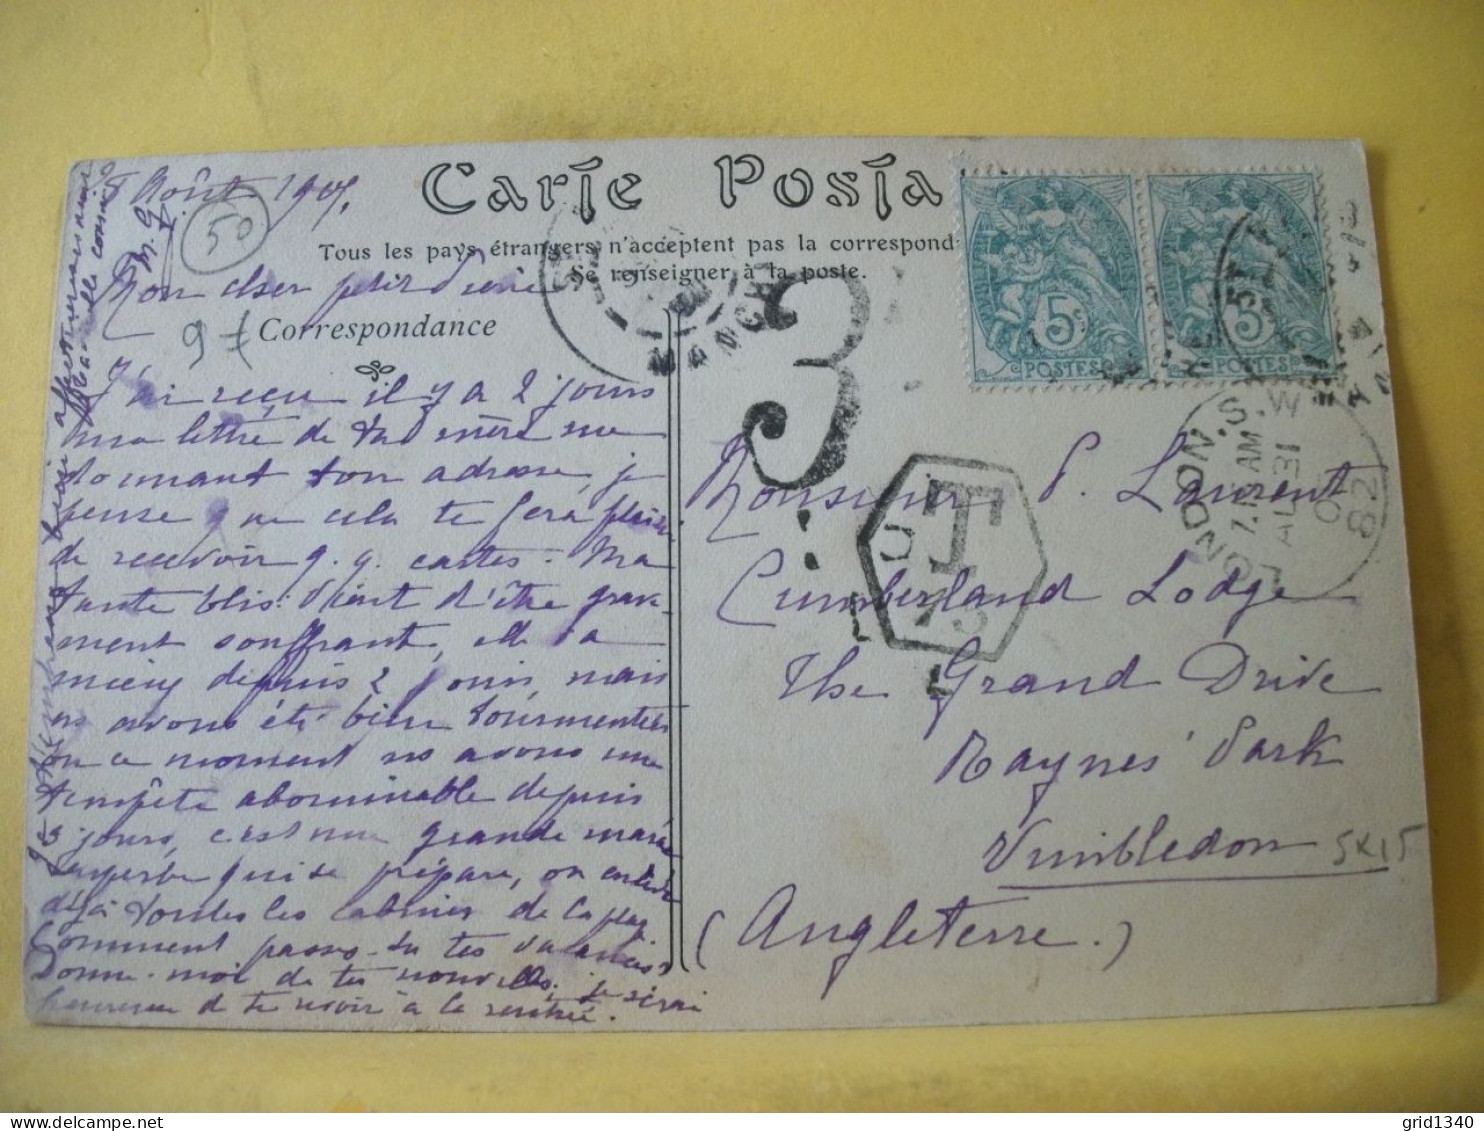 Carte Posta
Août 190
Tous les pays étrangers n'acceptent pas la correspond
Se renseigner à la poste.
50
Mon cher petit
Correspondance
J'ai reçu il y a 2 jours
ma lettre de ta mère me
donnant ton adresse, je
pense que cela te fera plaisir
de recevoir q. q. cartes. Ma
tante vient d'être grave-
ment souffrant, elle va
mieux depuis 2 jours, mais
ns avons été bien tourmentés
en ce moment ns avons une
tempête abominable depuis
3 jours, c'est une grande marée
superbe qui se prépare, on enlève
déjà toutes les cabines de la plage
Comment passes-tu tes vacances?
Donne-moi de tes nouvelles, je serai
heureuse de te revoir à la rentrée.
Je t'embrasse bien affectueusement
MANCHE
3
5c
POSTES
5c
POSTES
LONDON.S.W
7.15 AM
AU 31
82
T
Monsieur P. Laurent
Cumberland Lodge
The Grand Drive
Raynes' Park
Wimbledon
5x15
(Angleterre.)
grid1340